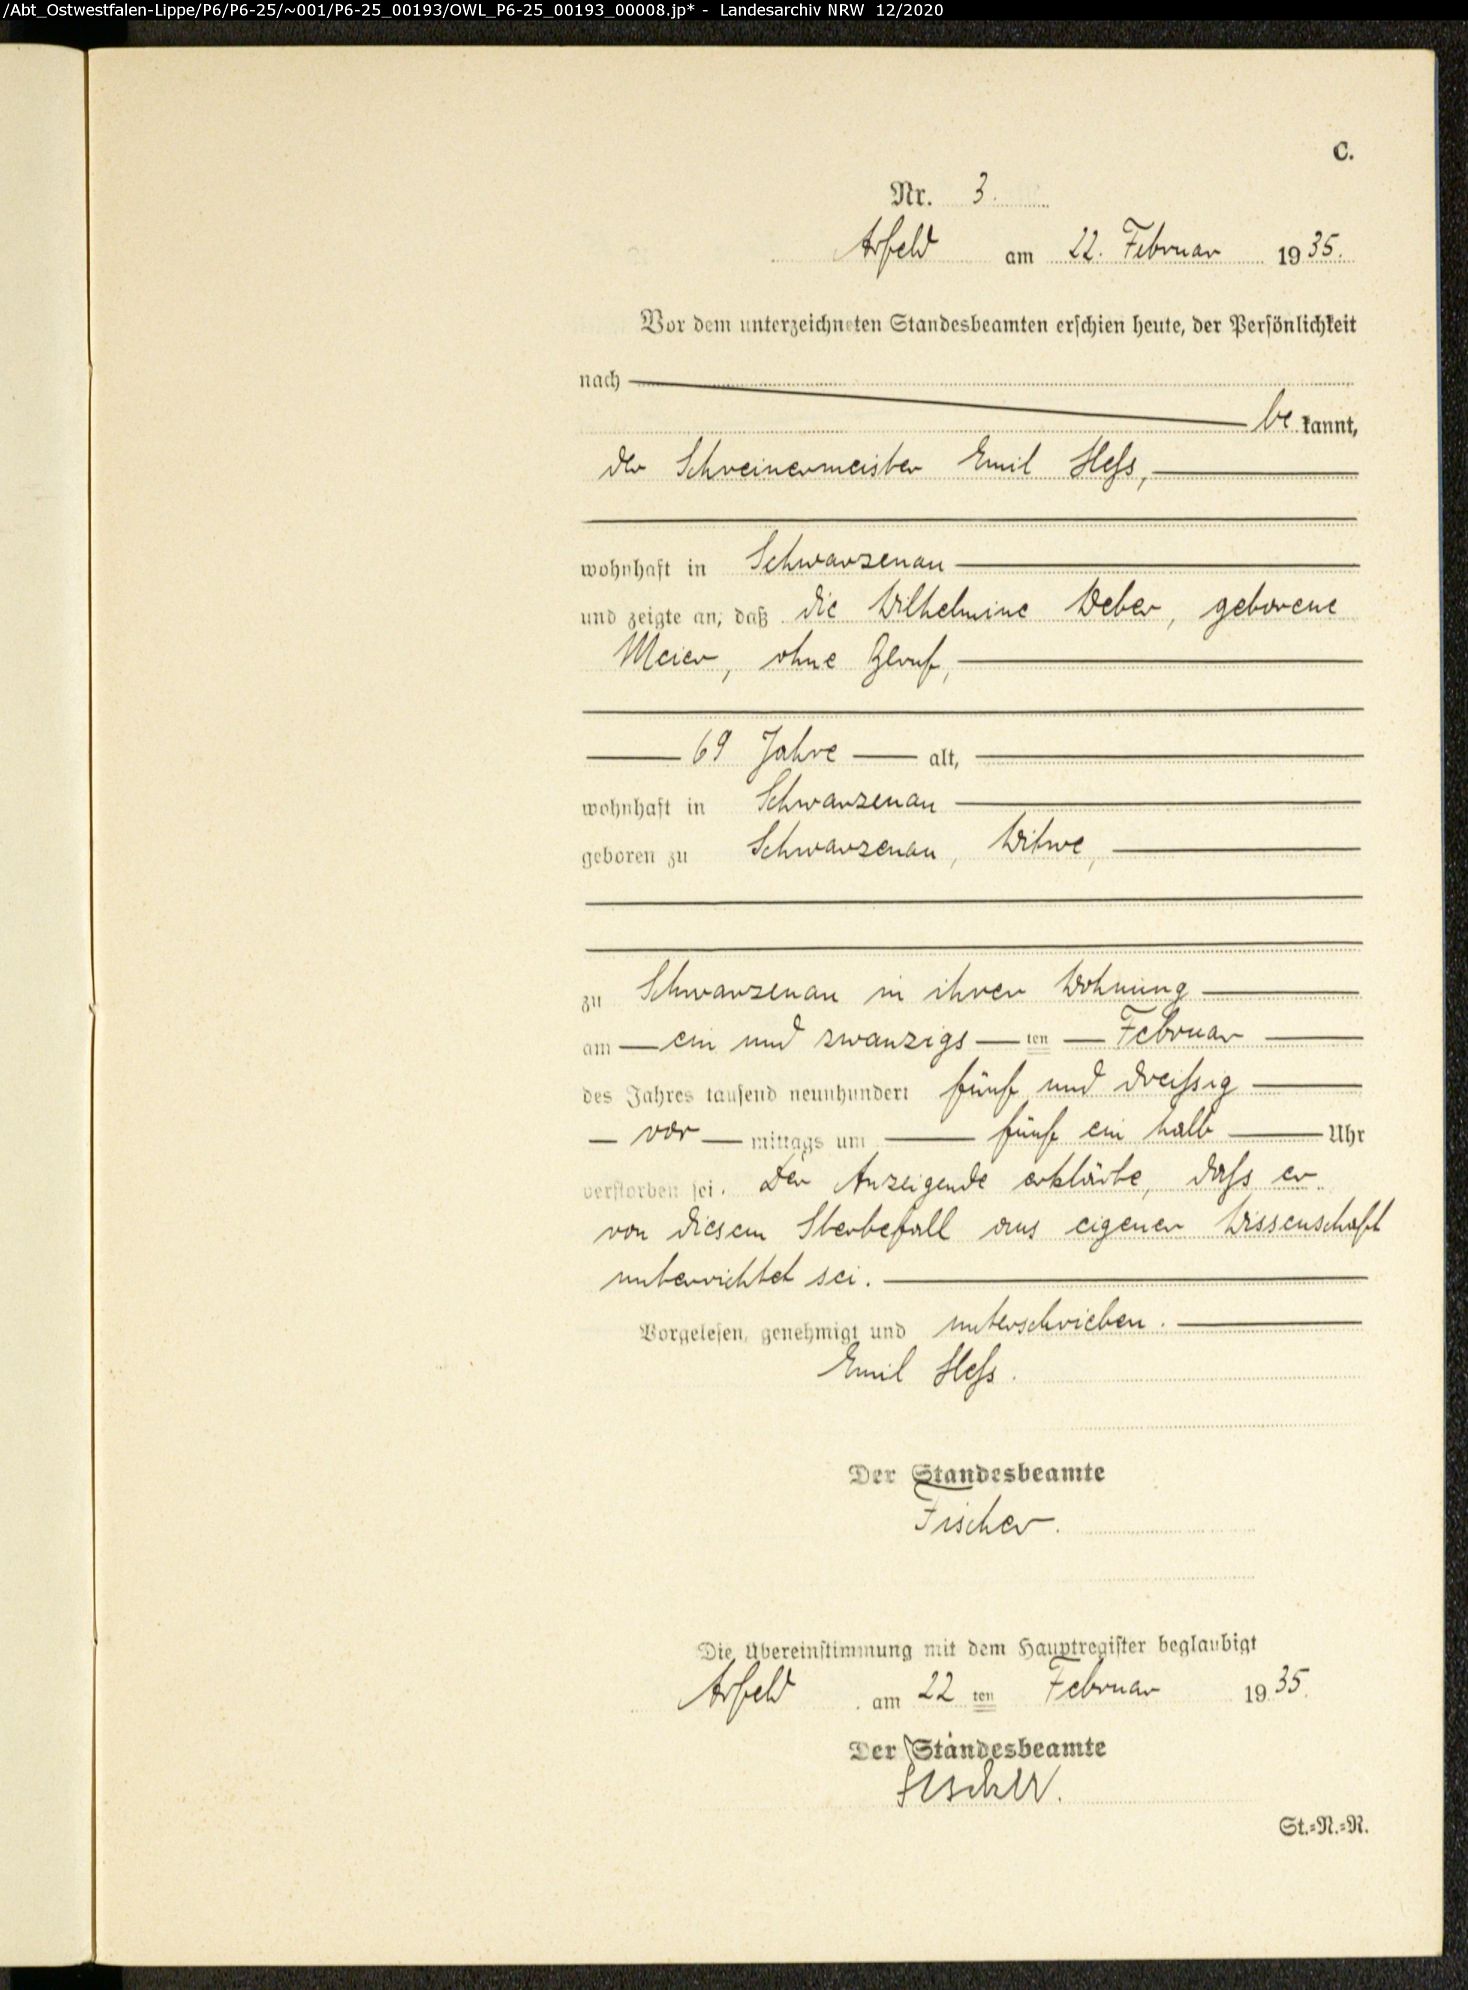 /Abt_Ostwestfalen-Lippe/P6/P6-25/~001/P6-25_00193/OWL_P6-25_00193_00008.jp* - Landesarchiv NRW 12/2020
C.
Nr. 3.
Arfeld am 22. Februar 1935.
Vor dem unterzeichneten Standesbeamten erschien heute, der Persönlichkeit
nach
be kannt,
der Schreinermeister Emil Heß,
wohnhaft in Schwarzenau
und zeigte an, daß die Wilhelmine Weber, geborene
Meier, ohne Beruf,
69 Jahre alt,
wohnhaft in Schwarzenau
geboren zu Schwarzenau, Witwe,
zu Schwarzenau in ihrer Wohnung
am ein und zwanzigs ten Februar
des Jahres tausend neunhundert fünf und dreißig
vor mittags um fünf ein halb Uhr
verstorben sei. Der Anzeigende erklärte, daß er
von diesem Sterbefall aus eigener Wissenschaft
unterrichtet sei.
Vorgelesen, genehmigt und unterschrieben.
Emil Heß.
Der Standesbeamte
Fischer.
Die Übereinstimmung mit dem Hauptregister beglaubigt
Arfeld am 22 ten Februar 1935.
Der Standesbeamte
Fischer.
St.=N.=R.